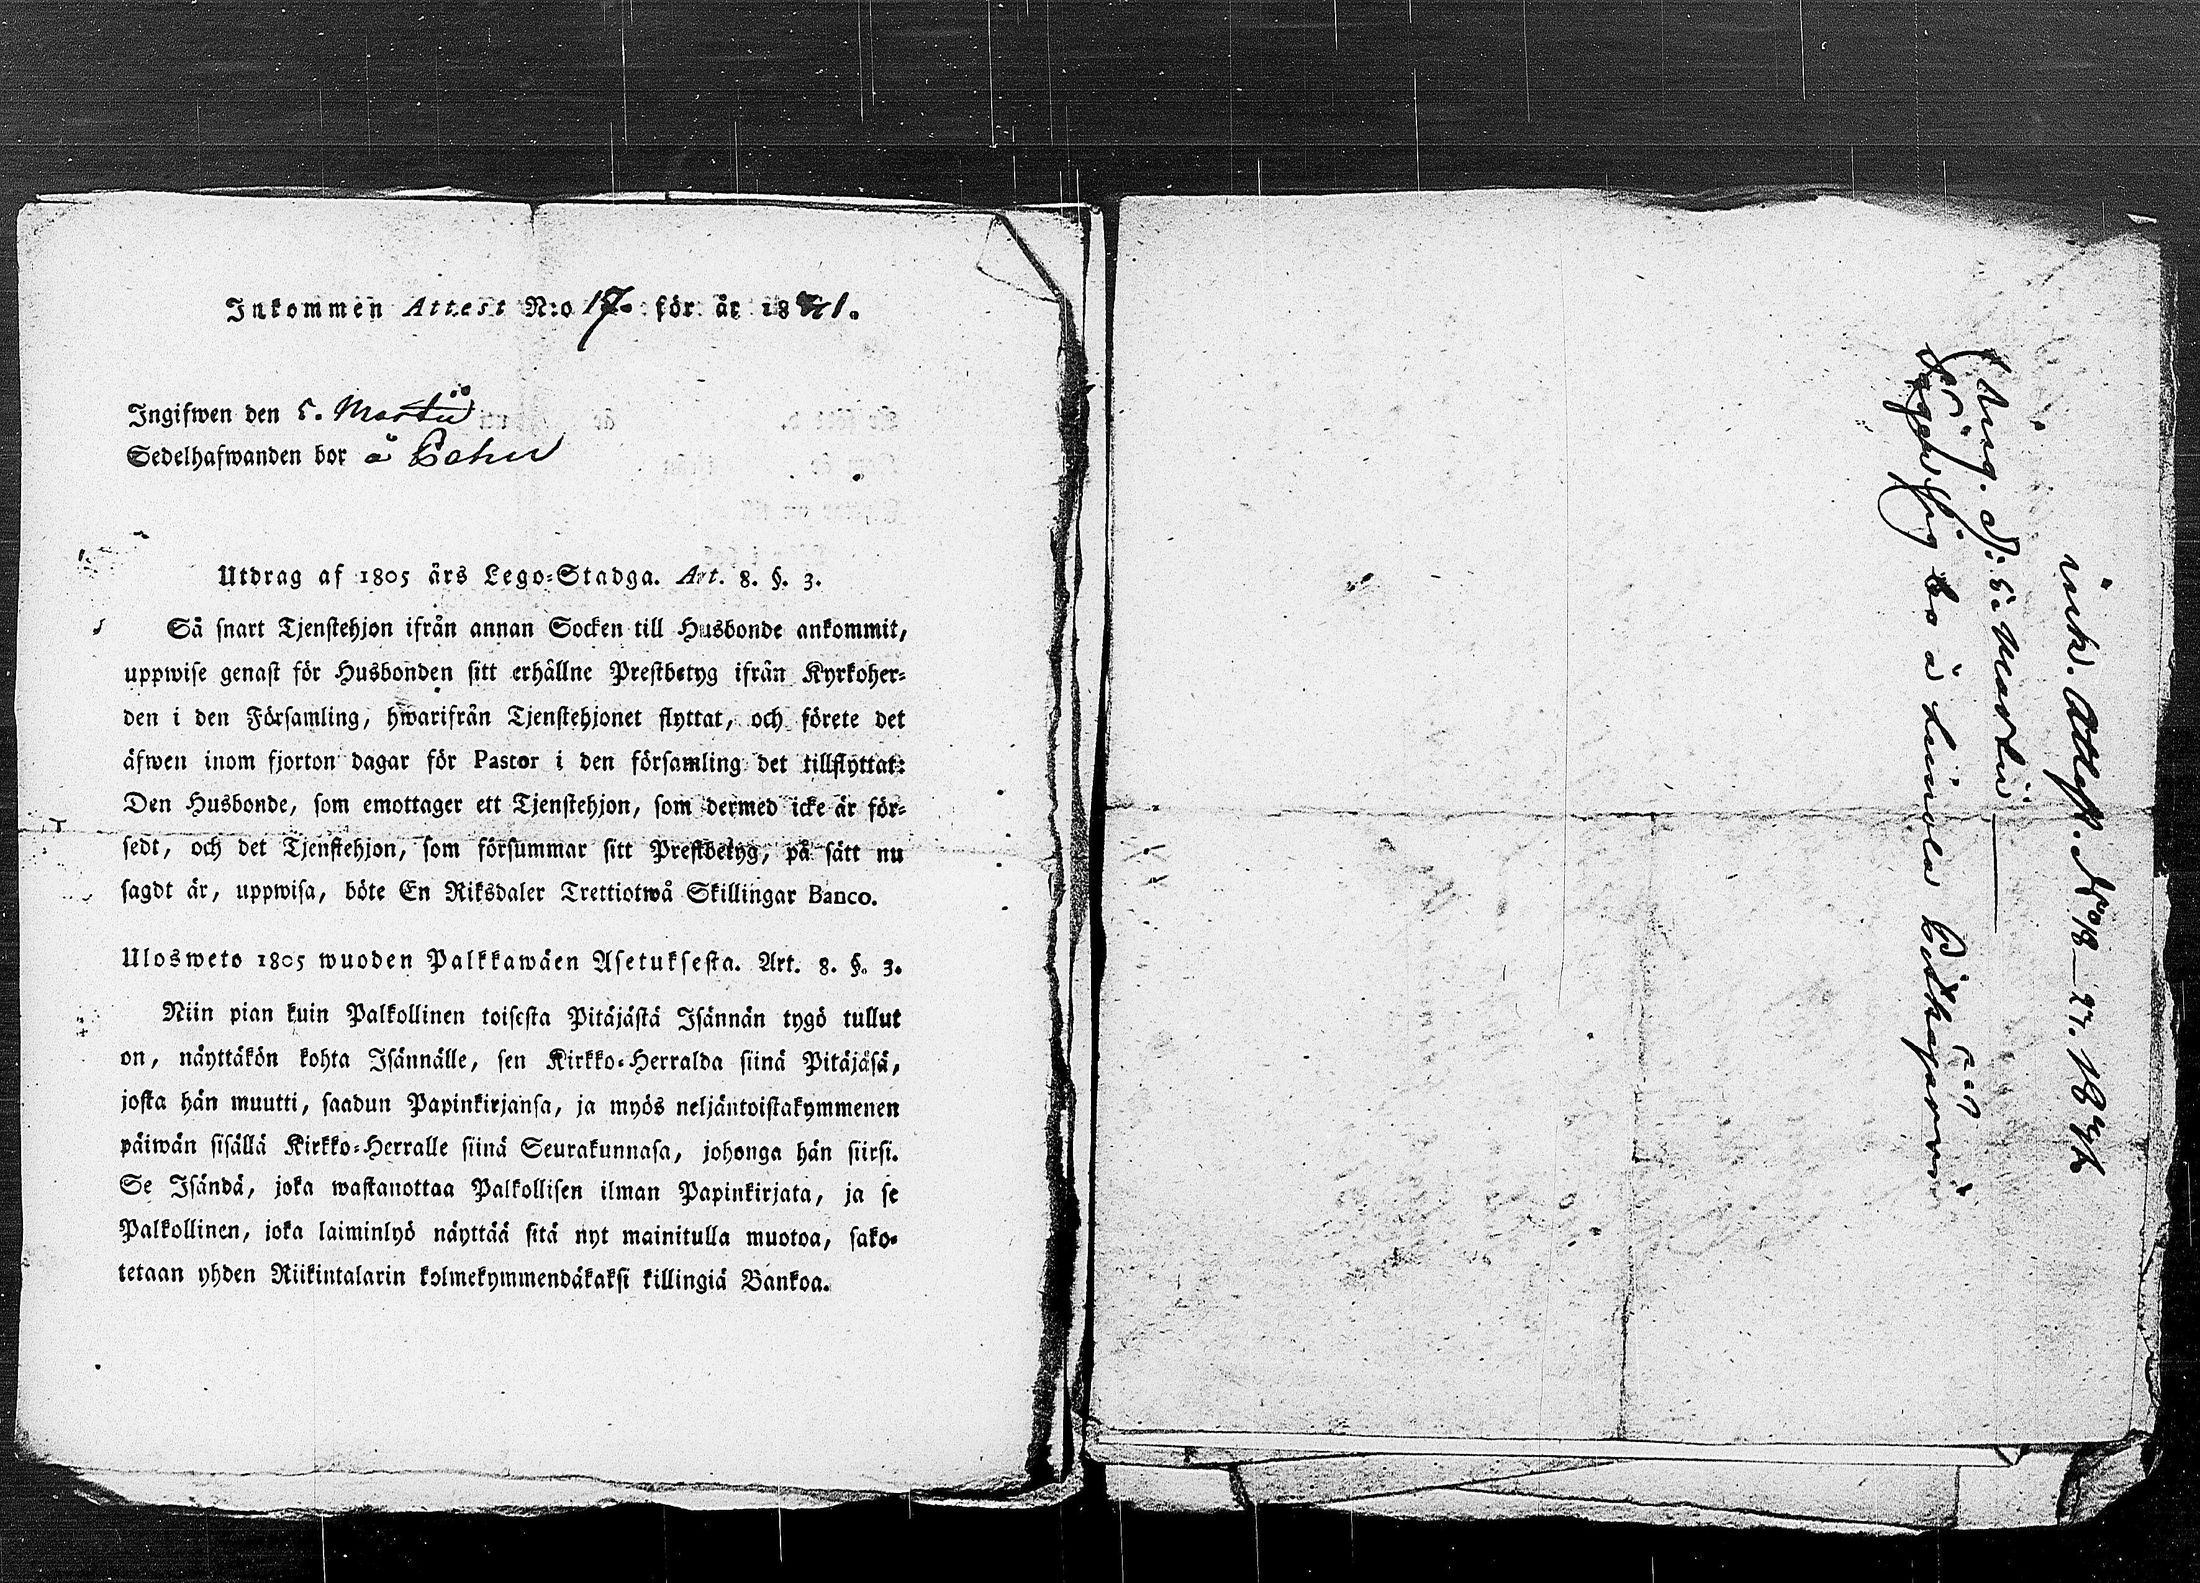 Inkommen Attest N:o 17. för år 1841.
Ingifwen den 5. Martii
Sedelhafwanden bor å
Utdrag af 1805 års Lego-Stadga. Art. 8. §. 3.
Så snart Tjenstehjon ifrån annan Socken till Husbonde ankommit,
uppwise genast för Husbonden sitt erhållne Prestbetyg ifrån Kyrkoher-
den i den Församling, hwarifrån Tjenstehjonet flyttat, och förete det
äfwen inom fjorton dagar för Pastor i den församling det tillflyttat:
Den Husbonde, som emottager ett Tjenstehjon, som dermed icke är för-
sedt, och det Tjenstehjon, som försummar sitt Prestbetyg, på sätt nu
sagdt är, uppwisa, böte En Riksdaler Trettiotwå Skillingar Banco.
Ulosweto 1805 wuoden Palkkawäen Asetuksesta. Art. 8. §. 3.
Niin pian kuin Palkollinen toisesta Pitäjästä Isännän tygö tullut
on, näyttäkön kohta Isännälle, sen Kirkko-Herralda siinä Pitäjäsä,
josta hän muutti, saadun Papinkirjansa, ja myös neljäntoistakymmenen
päiwän sisällä Kirkko-Herralle siinä Seurakunnasa, johonga hän siirsi.
Se Isändä, joka wastanottaa Palkollisen ilman Papinkirjata, ja se
Palkollinen, joka laiminlyö näyttää sitä nyt mainitulla muotoa, sako-
tetaan yhden Riikintalarin kolmekymmendäkaksi killingiä Bankoa.
ink. Att. N:o 18 1841
Ing. d. 5. Martii
bo å